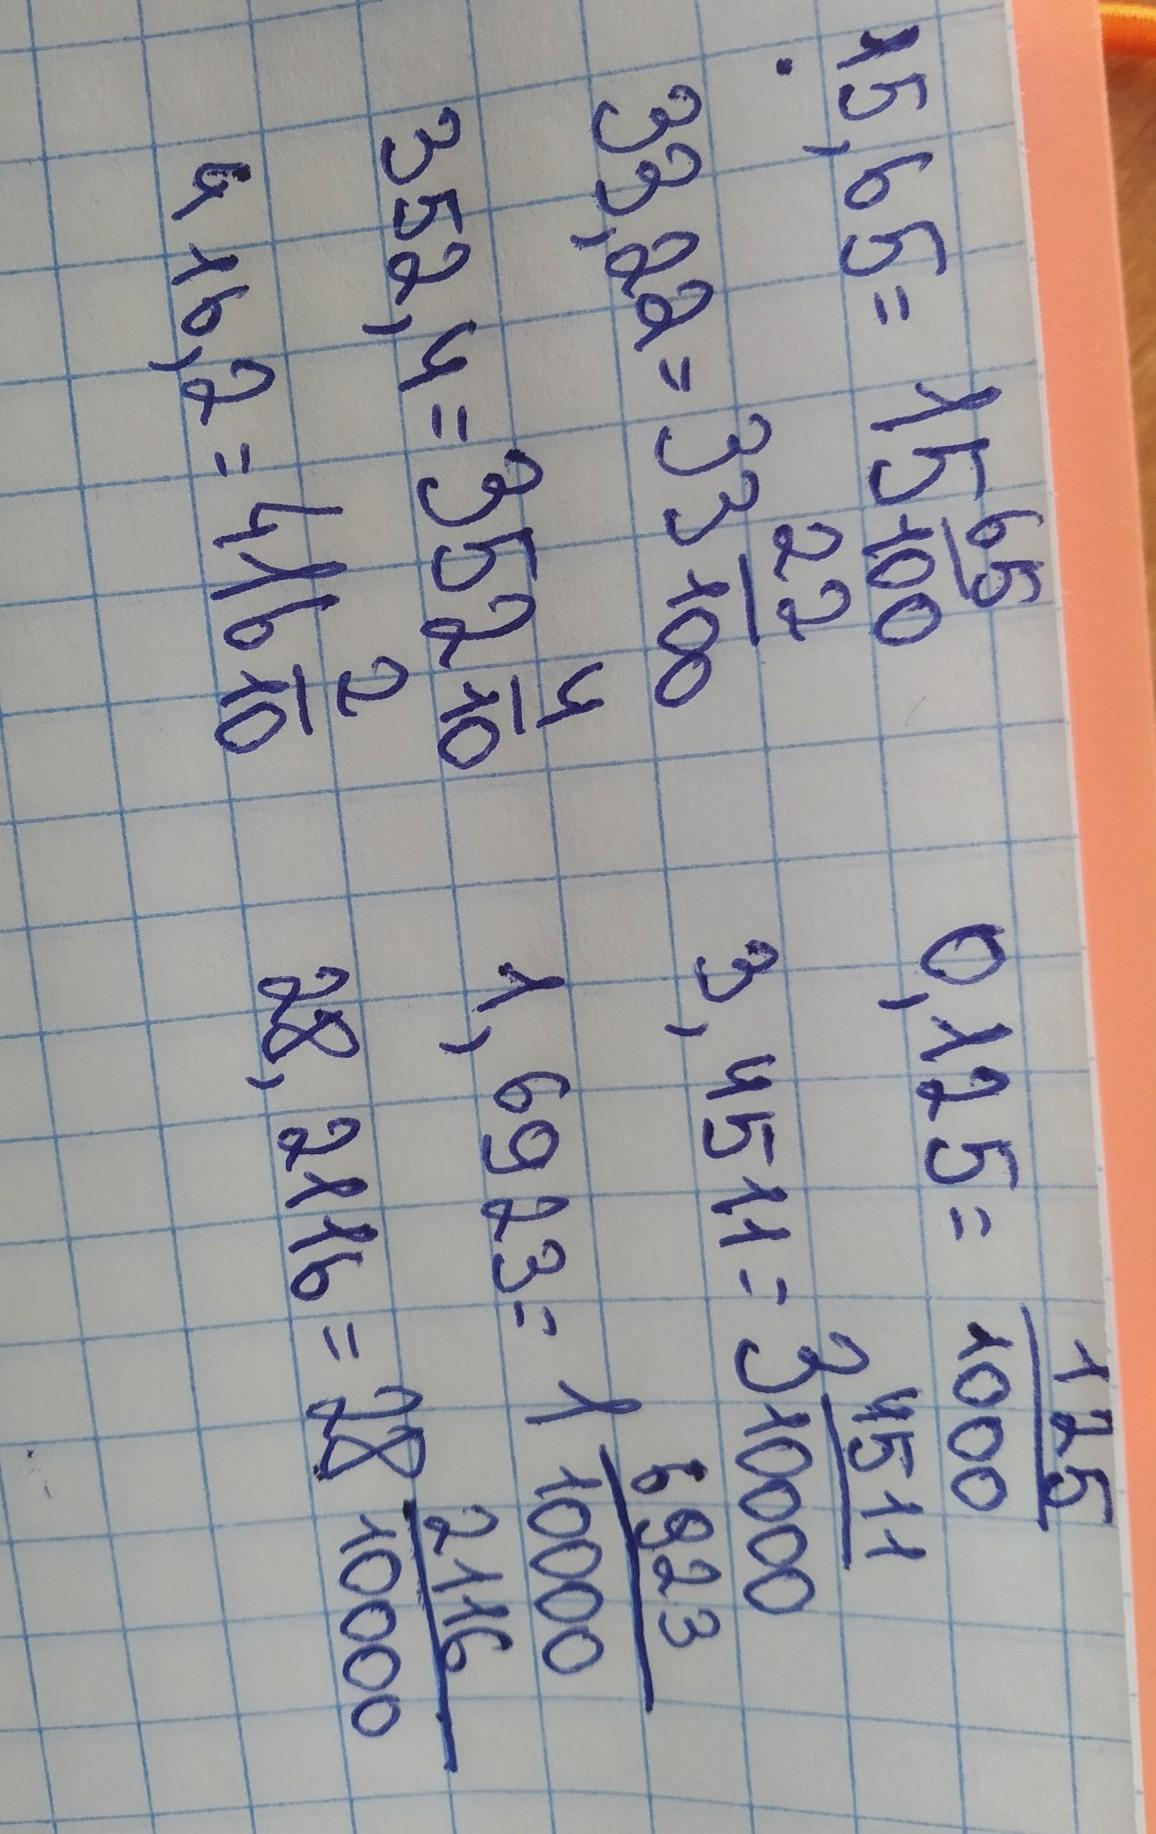 15,65 = 15 65/100
33,22 = 33 22/100
352,4 = 352 4/10
416,2 = 416 2/10
0,125 = 125/1000
3,4511 = 3 4511/10000
1,6923 = 1 6923/10000
28,2116 = 28 2116/10000